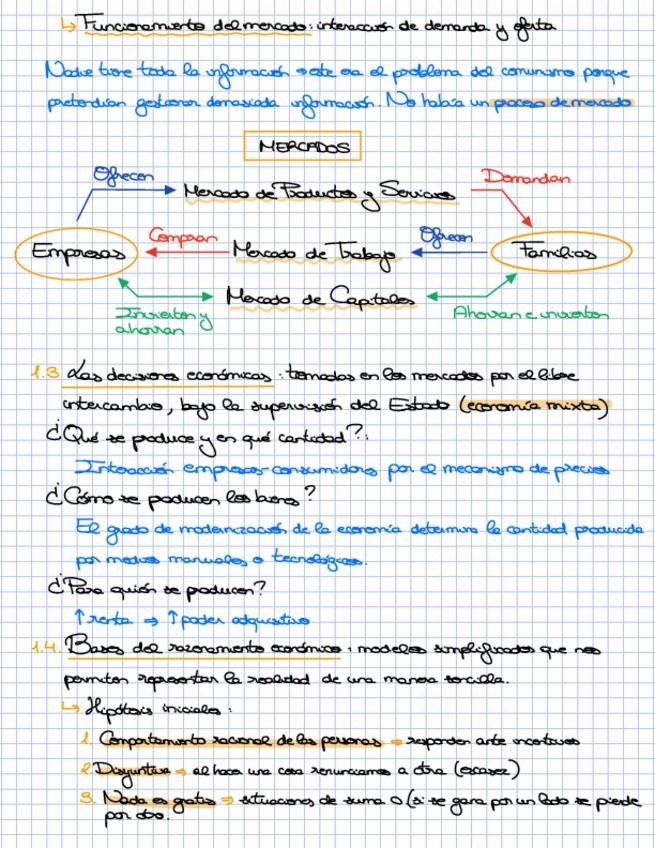 ↳ Funcionamiento del mercado: interacción de demanda y oferta
Nadie tiene toda la información → este era el problema del comunismo porque
pretendían gestionar demasiada información. No había un proceso de mercado
MERCADOS
Ofrecen
Demandan
Mercado de Productos y Servicios
Empresas
Compran
Mercado de Trabajo
Ofrecen
Familias
Mercado de Capitales
Invierten y
ahorran
Ahorran e invierten
1.3 Las decisiones económicas: tomadas en los mercados por el libre
intercambio, bajo la supervisión del Estado (economía mixta)
¿Qué se produce y en qué cantidad?:
Interacción empresas-consumidores por el mecanismo de precios
¿Cómo se producen los bienes?
El grado de modernización de la economía determina la cantidad producida
por medios manuales o tecnológicos.
¿Para quién se producen?
↑ renta ⇒ ↑ poder adquisitivo
1.4. Bases del razonamiento económico: modelos simplificados que nos
permiten representar la realidad de una manera sencilla.
↳ Hipótesis iniciales:
1. Comportamiento racional de las personas ⇒ responden ante incentivos
2. Disyuntiva ⇒ al hacer una cosa renunciamos a otra (escasez)
3. Nada es gratis ⇒ situaciones de suma 0 (si se gana por un lado se pierde
por otro.